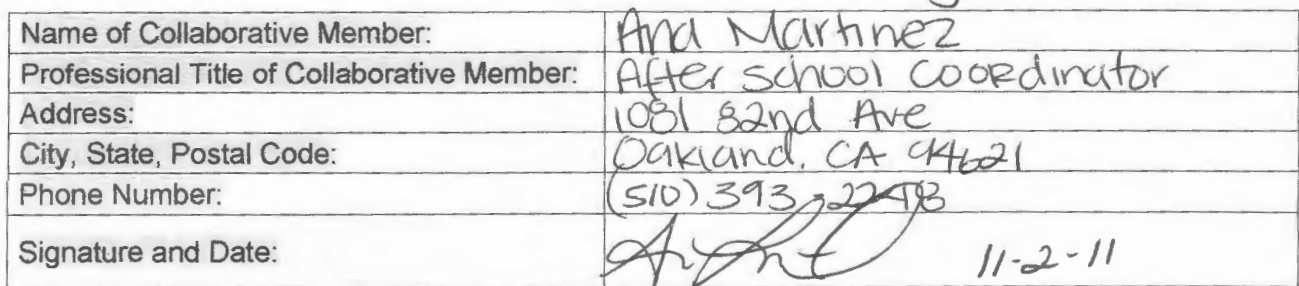 Name of Collaborative Member: Ana Martinez
Professional Title of Collaborative Member: After school coordinator
Address: 1081 82nd Ave
City, State, Postal Code: Oakland, CA 94621
Phone Number: (510) 393
Signature and Date: 11-2-11